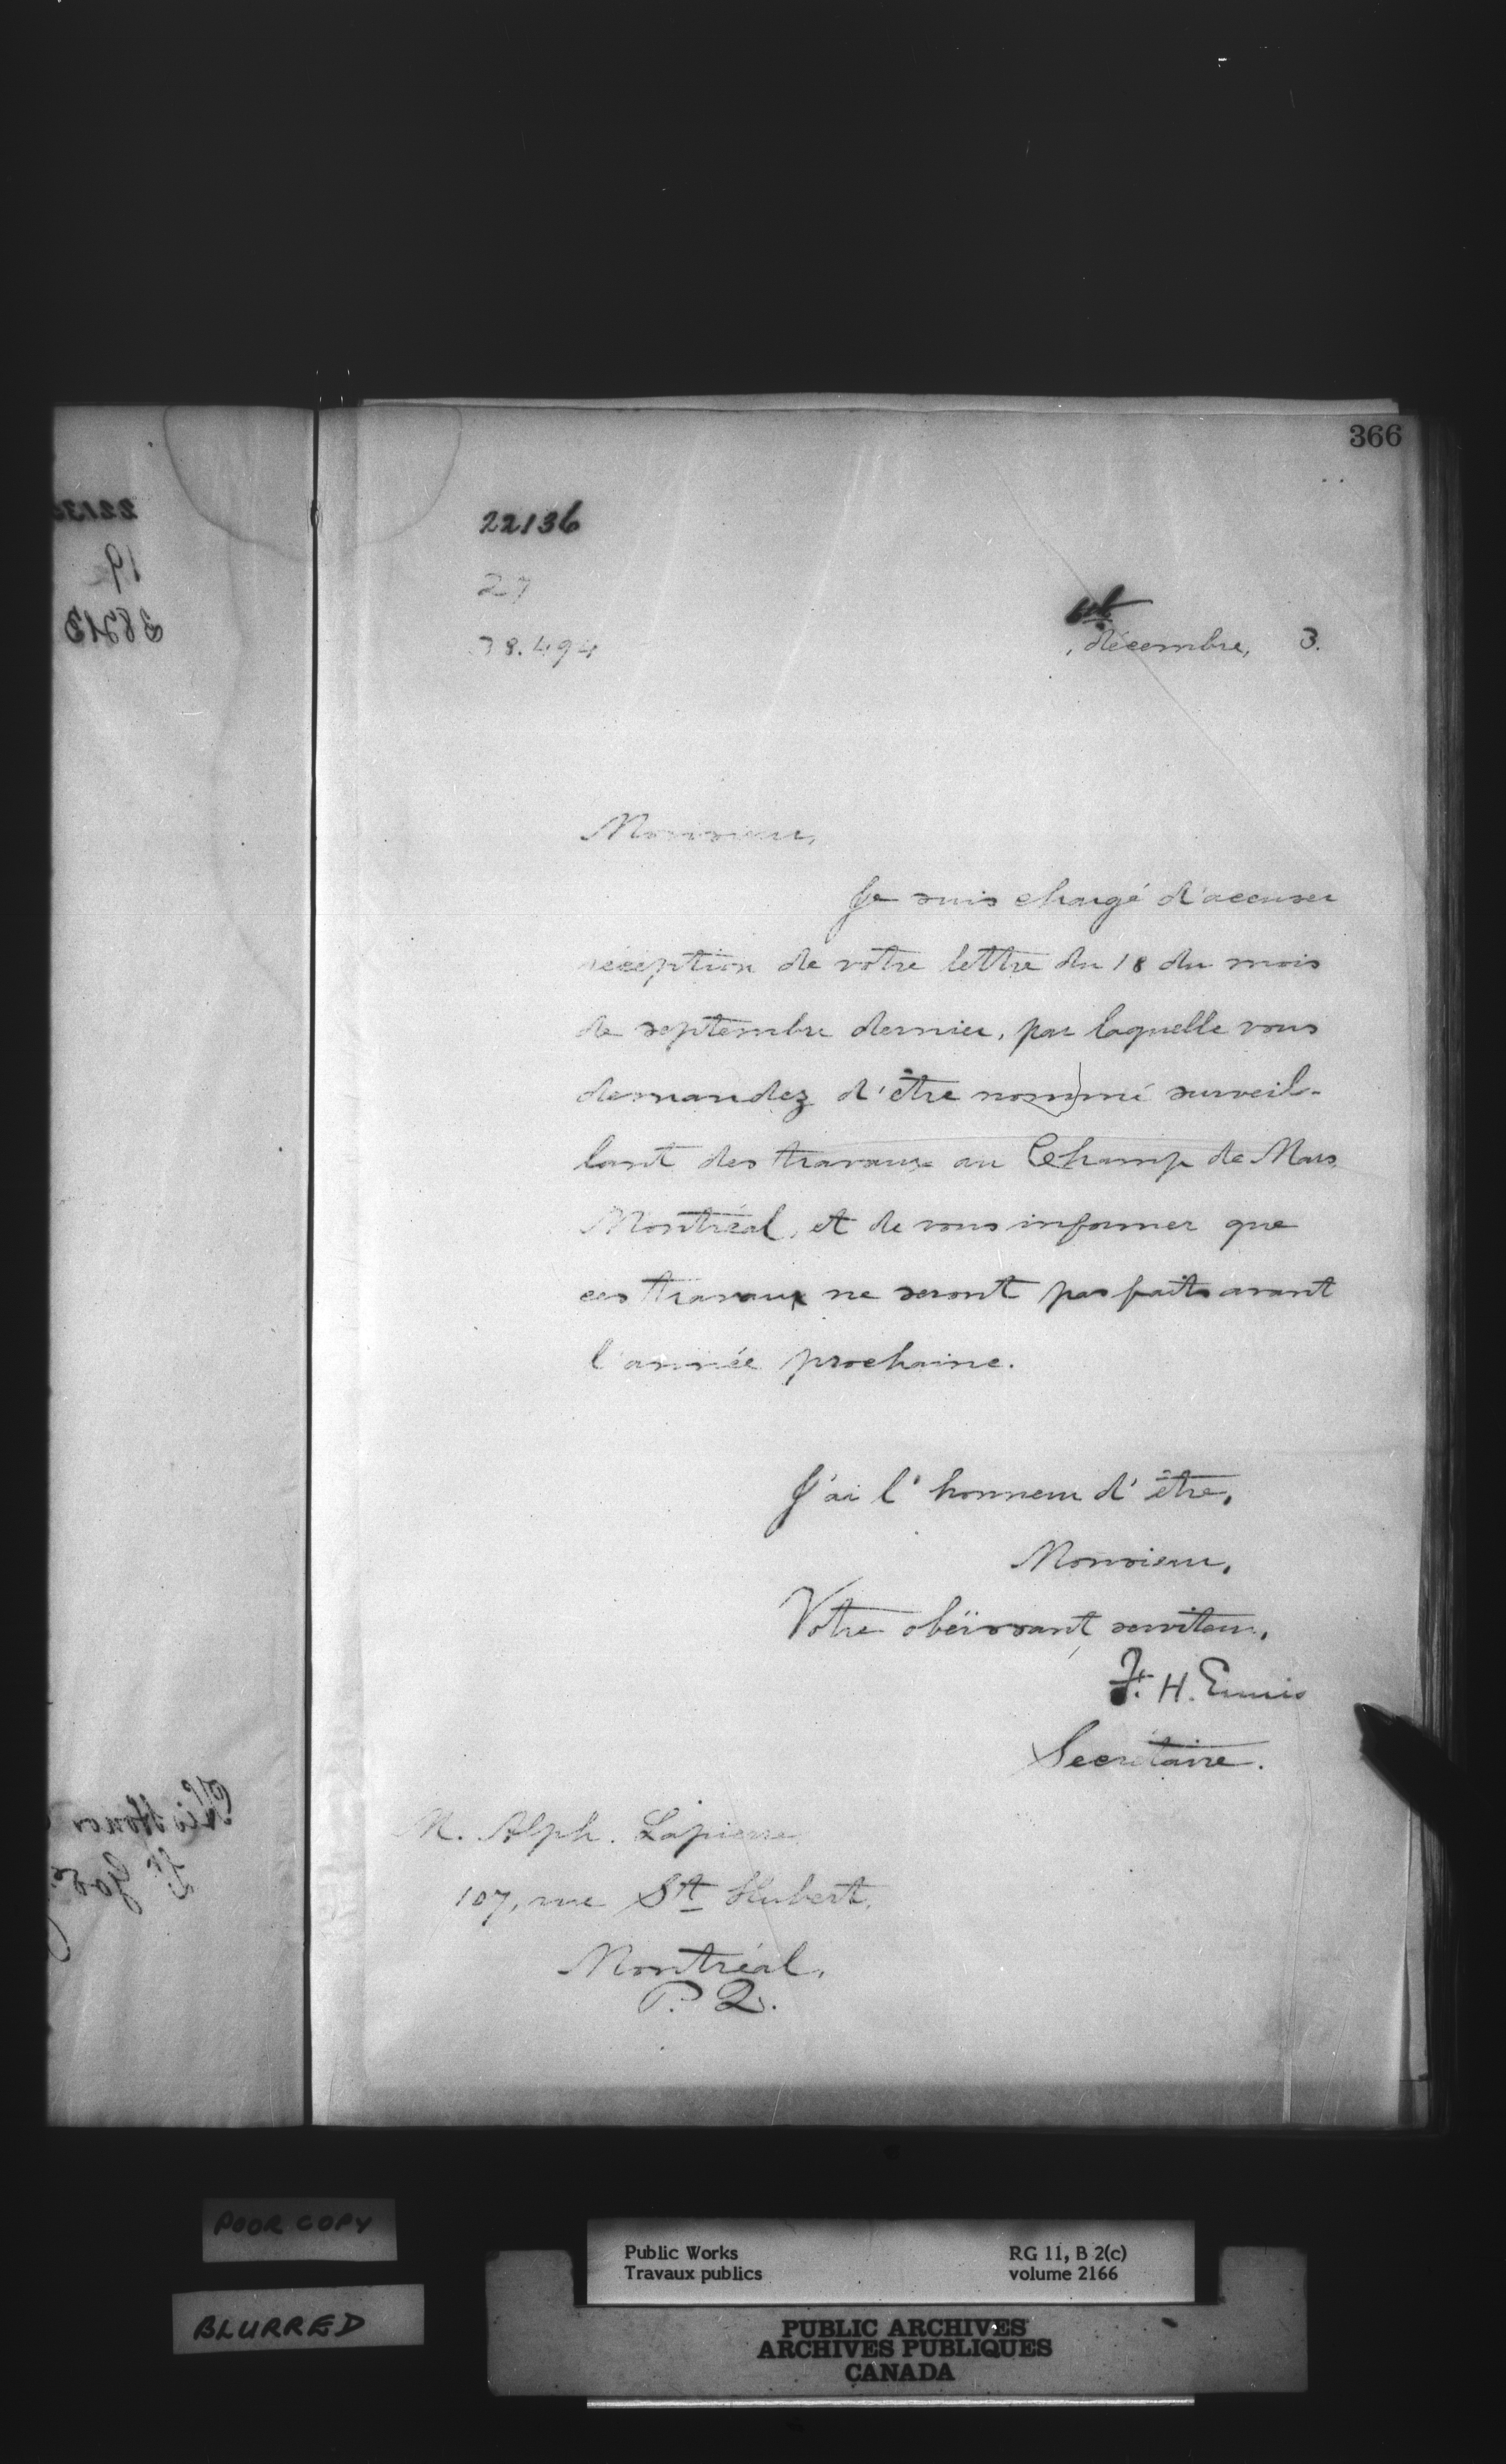 366
22136
27
38.494
décembre, 3.
Monsieur,
Je suis chargé d'accuser
réception de votre lettre du 18 du mois
de septembre dernier, par laquelle vous
demandez d'être nommé surveil-
lant des travaux au Champ de Mars,
Montréal, et de vous informer que
ces travaux ne seront pas faits avant
l'année prochaine.
J'ai l'honneur d'être,
Monsieur,
Votre obéissant serviteur,
F. H. Ennis
Secrétaire.
M. Alph. Lapierre
107, rue St Hubert,
Montréal,
P. Q.
POOR COPY
BLURRED
Public Works
Travaux publics
RG 11, B 2(c)
volume 2166
PUBLIC ARCHIVES
ARCHIVES PUBLIQUES
CANADA